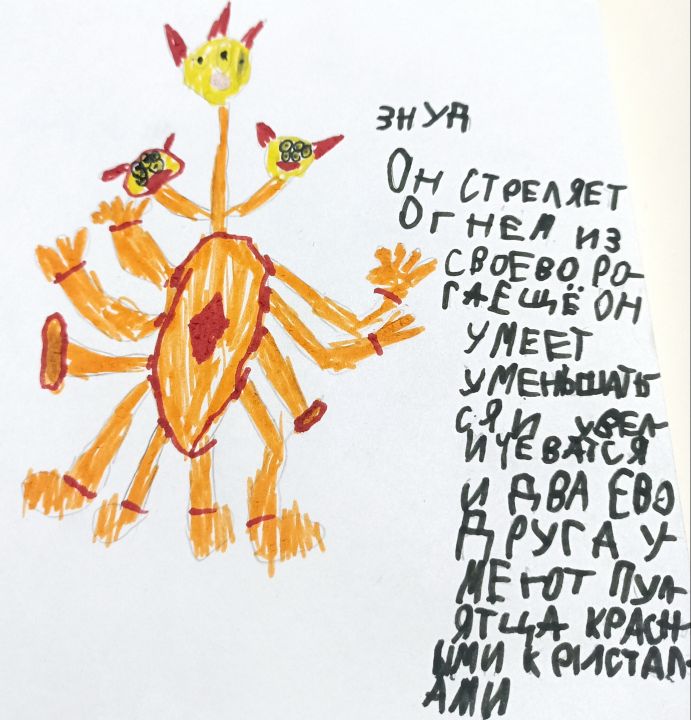 ЗНУД
ОН СТРЕЛЯЕТ
ОГНЕМ ИЗ
СВОЕВО РО-
ГА ЕЩЁ ОН
УМЕЕТ
УМЕНЬШАТЬ
СЯ И УВЕЛ
ИЧЕВАТСЯ
И ДВА ЕВО
ДРУГА У-
МЕЮТ ПУЛ
ЯТЦА КРАСН
ЫМИ КРИСТАЛ
АМИ